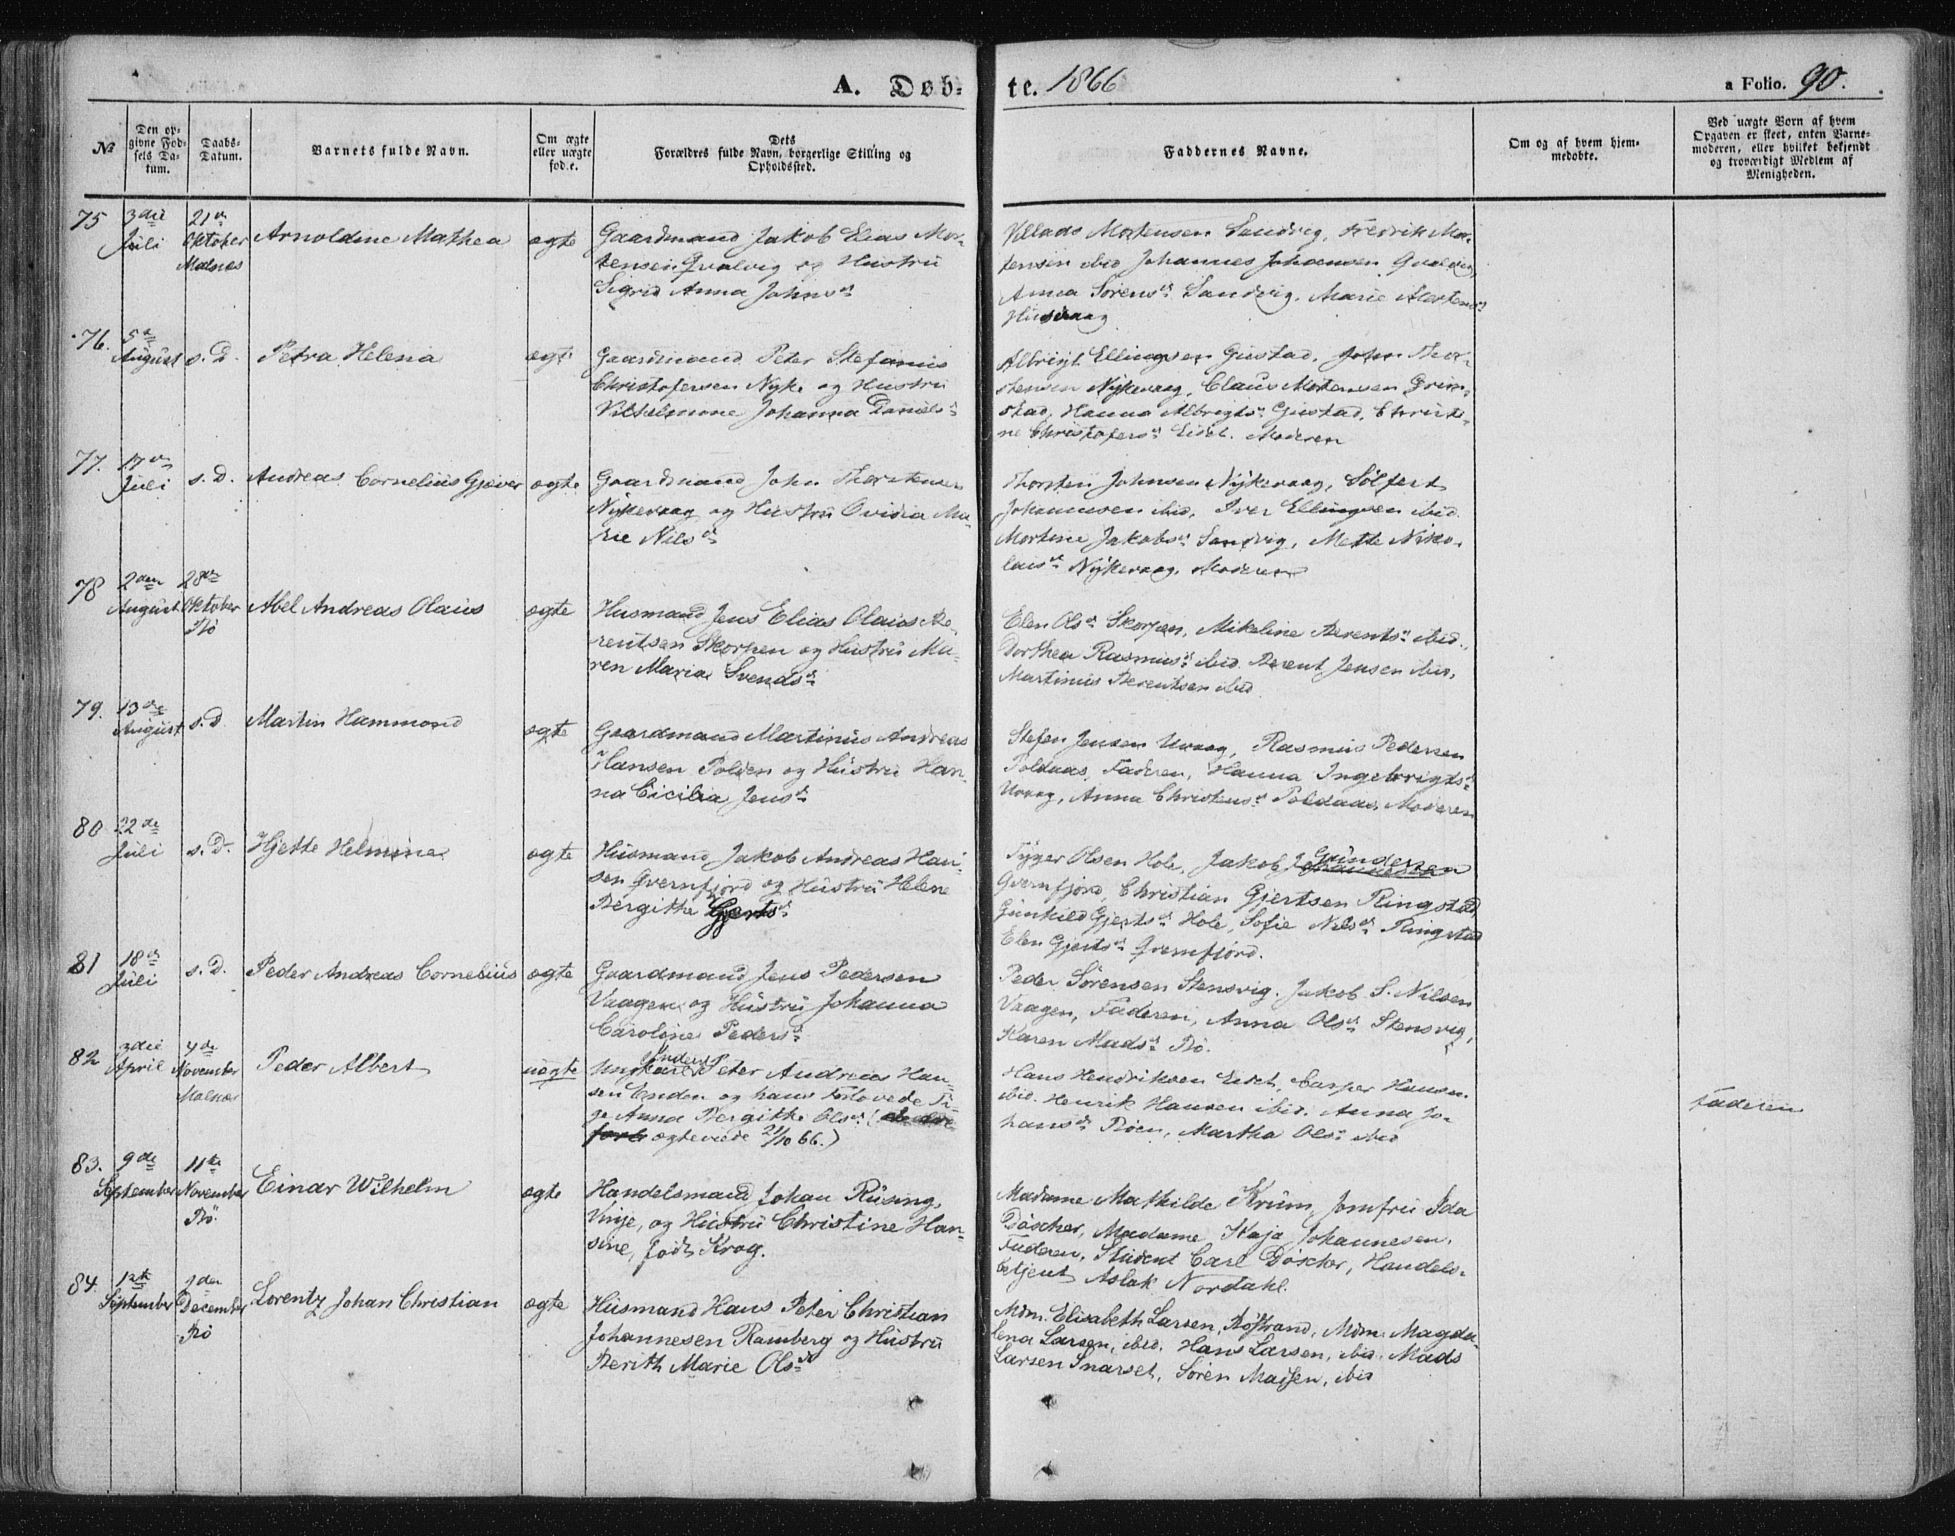 A. Døb-
te. 1866
a Folio. 90.
№
Den op-
givne Fød-
sels Da-
tum.
Daabs-
Datum.
Barnets fulde Navn.
Om ægte
eller uægte
fød.e.
Dets
Forældres fulde Navn, borgerlige Stilling og
Opholdssted.
Faddernes Navne.
Om og af hvem hjem-
medøbte.
Ved uægte Børn af hvem
Opgaven er skeet, enten Barne-
moderen, eller hvilket bekjendt
og troværdigt Medlem af
Menigheden.
75.
3die
Juli
21de
Oktober
Malnes
Arnoldine Mathea
ægte
Gaardmand Jakob Elias Mor-
tensen Qvalvig og Hustru
Sigrid Anna Johnsd.
Villads Mortensen Sandvig, Fredrik Mor-
tensen ibid Johannes Johansen Qvalvig
Anna Sørensd. Sandvig, Marie Mortensd.
76.
5te
August
s. D.
Petra Helena
ægte
Gaardmand Peter Stefanus
Christofersen Nyke og Hustru
Vilhelmine Johanna Danielsd.
Albrigt Ellingsen Gustad, John Thor-
stensen Nykevaag, Claus Mortensen Grim-
stad, Hanna Albrigtsd. Gustad, Christi-
ne Christofersd. Eidet. Moderen
77.
17de
Juli
s. D.
Andreas Cornelius Gjæver
ægte
Gaardmand John Thorstensen
Nykevaag og Hustru Ovidia Ma-
rie Nilsd.
Thorsten Johnsen Nykevaag, Sölfert
Johannesen ibid, Iver Ellingsen ibid.
Mortine Jakobsd. Sandvig, Mette Niko-
laisd. Nykevaag. Moderen
78
2den
August
28de
Oktober
Bø
Abel Andreas Olaus
ægte
Husmand Jens Elias Olaus Be-
rentsen Skorpen og Hustru Ma-
ren Maria Svendsd.
Elen Olsd. Skorpen, Mikeline Berentsd. ibid.,
Dorthea Rasmusd. ibid. Berent Jensen ibid,
Martinus Berentsen ibid
79.
13de
August
s. D.
Martin Hammond
ægte
Gaardmand Martinus Andreas
Hansen Polden og Hustru Han-
na Cicilia Jensd.
Stefen Jensen Uvaag, Rasmus Pedersen
Poldaas, Faderen, Hanna Ingebrigtsd.
Uvaag, Anna Christensd. Poldaas, Moderen
80
22de
Juli
s. D.
Hjette Helmine
ægte
Husmand Jakob Andreas Han-
sen Qvernfjord og Hustru Helene
Bergitte Gjertsd.
Tyger Olsen Hole, Jakob Gundersen
Qvernfjord, Christian Gjertsen Ringstad,
Gunhild Gjertsd. Hole, Sofie Nilsd. Ringstad
Elen Gjertsd. Qvernfjord.
81
18de
Juli
s. D.
Peder Andreas Cornelius
ægte
Gaardmand Jens Pedersen
Vaagen og Hustru Johanna
Caroline Pedersd.
Peder Sørensen Stensvig. Jakob S. Nilsen
Vaagen, Faderen, Anna Olsd. Stensvig,
Karen Madsd. Bø.
82
3die
April
4de
November
Malnes
Peder Albert
uægte
Ungkarl Peter Andreas Han-
sen Enden og hans Forlovede Pi-
ge Anna Bergitte Olsd. (
ægteviede 21/10 66.)
Hans Hendriksen Eidet, Casper Hansen
ibid. Henrik Hansen ibid. Anna Jo-
hansd. Bøen, Martha Olsd. ibid
Faderen
83.
9de
September
11te
November
Bø.
Einar Wilhelm
ægte
Handelsmand Johan Rüsing,
Vinje, og Hustru Christine Han-
sine, født Krog.
Madame Mathilde Krum, Jomfru Ida
Döscher, Madame Kaja Johannesen.
Faderen, Student Carl Döscher, Handels-
betjent Aslak Nordahl.
84.
12te
September
2den
December
Bø
Lorentz Johan Christian
ægte
Husmand Hans Peter Christian
Johannesen Ramberg og Hustru
Berith Marie Olsd.
Mdm. Elisabeth Larsen, Røstrand, Mdm. Magda-
lena Larsen, ibid. Hans Larsen, ibid. Mads
Larsen Snarset, Sören ibid